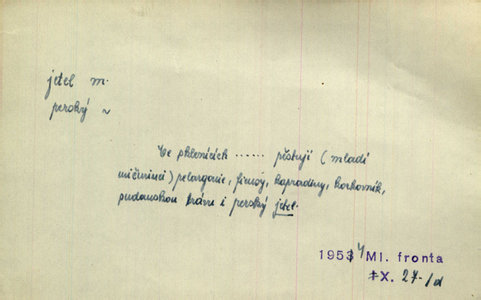 jetel m.
perský ~
Ve sklenících ...... pěstují (mladí
mičurinci) pelargonie, fíkusy, kapradiny, korkovník,
sudanskou trávu i perský jetel.
1954 Ml. fronta
X. 27-/d